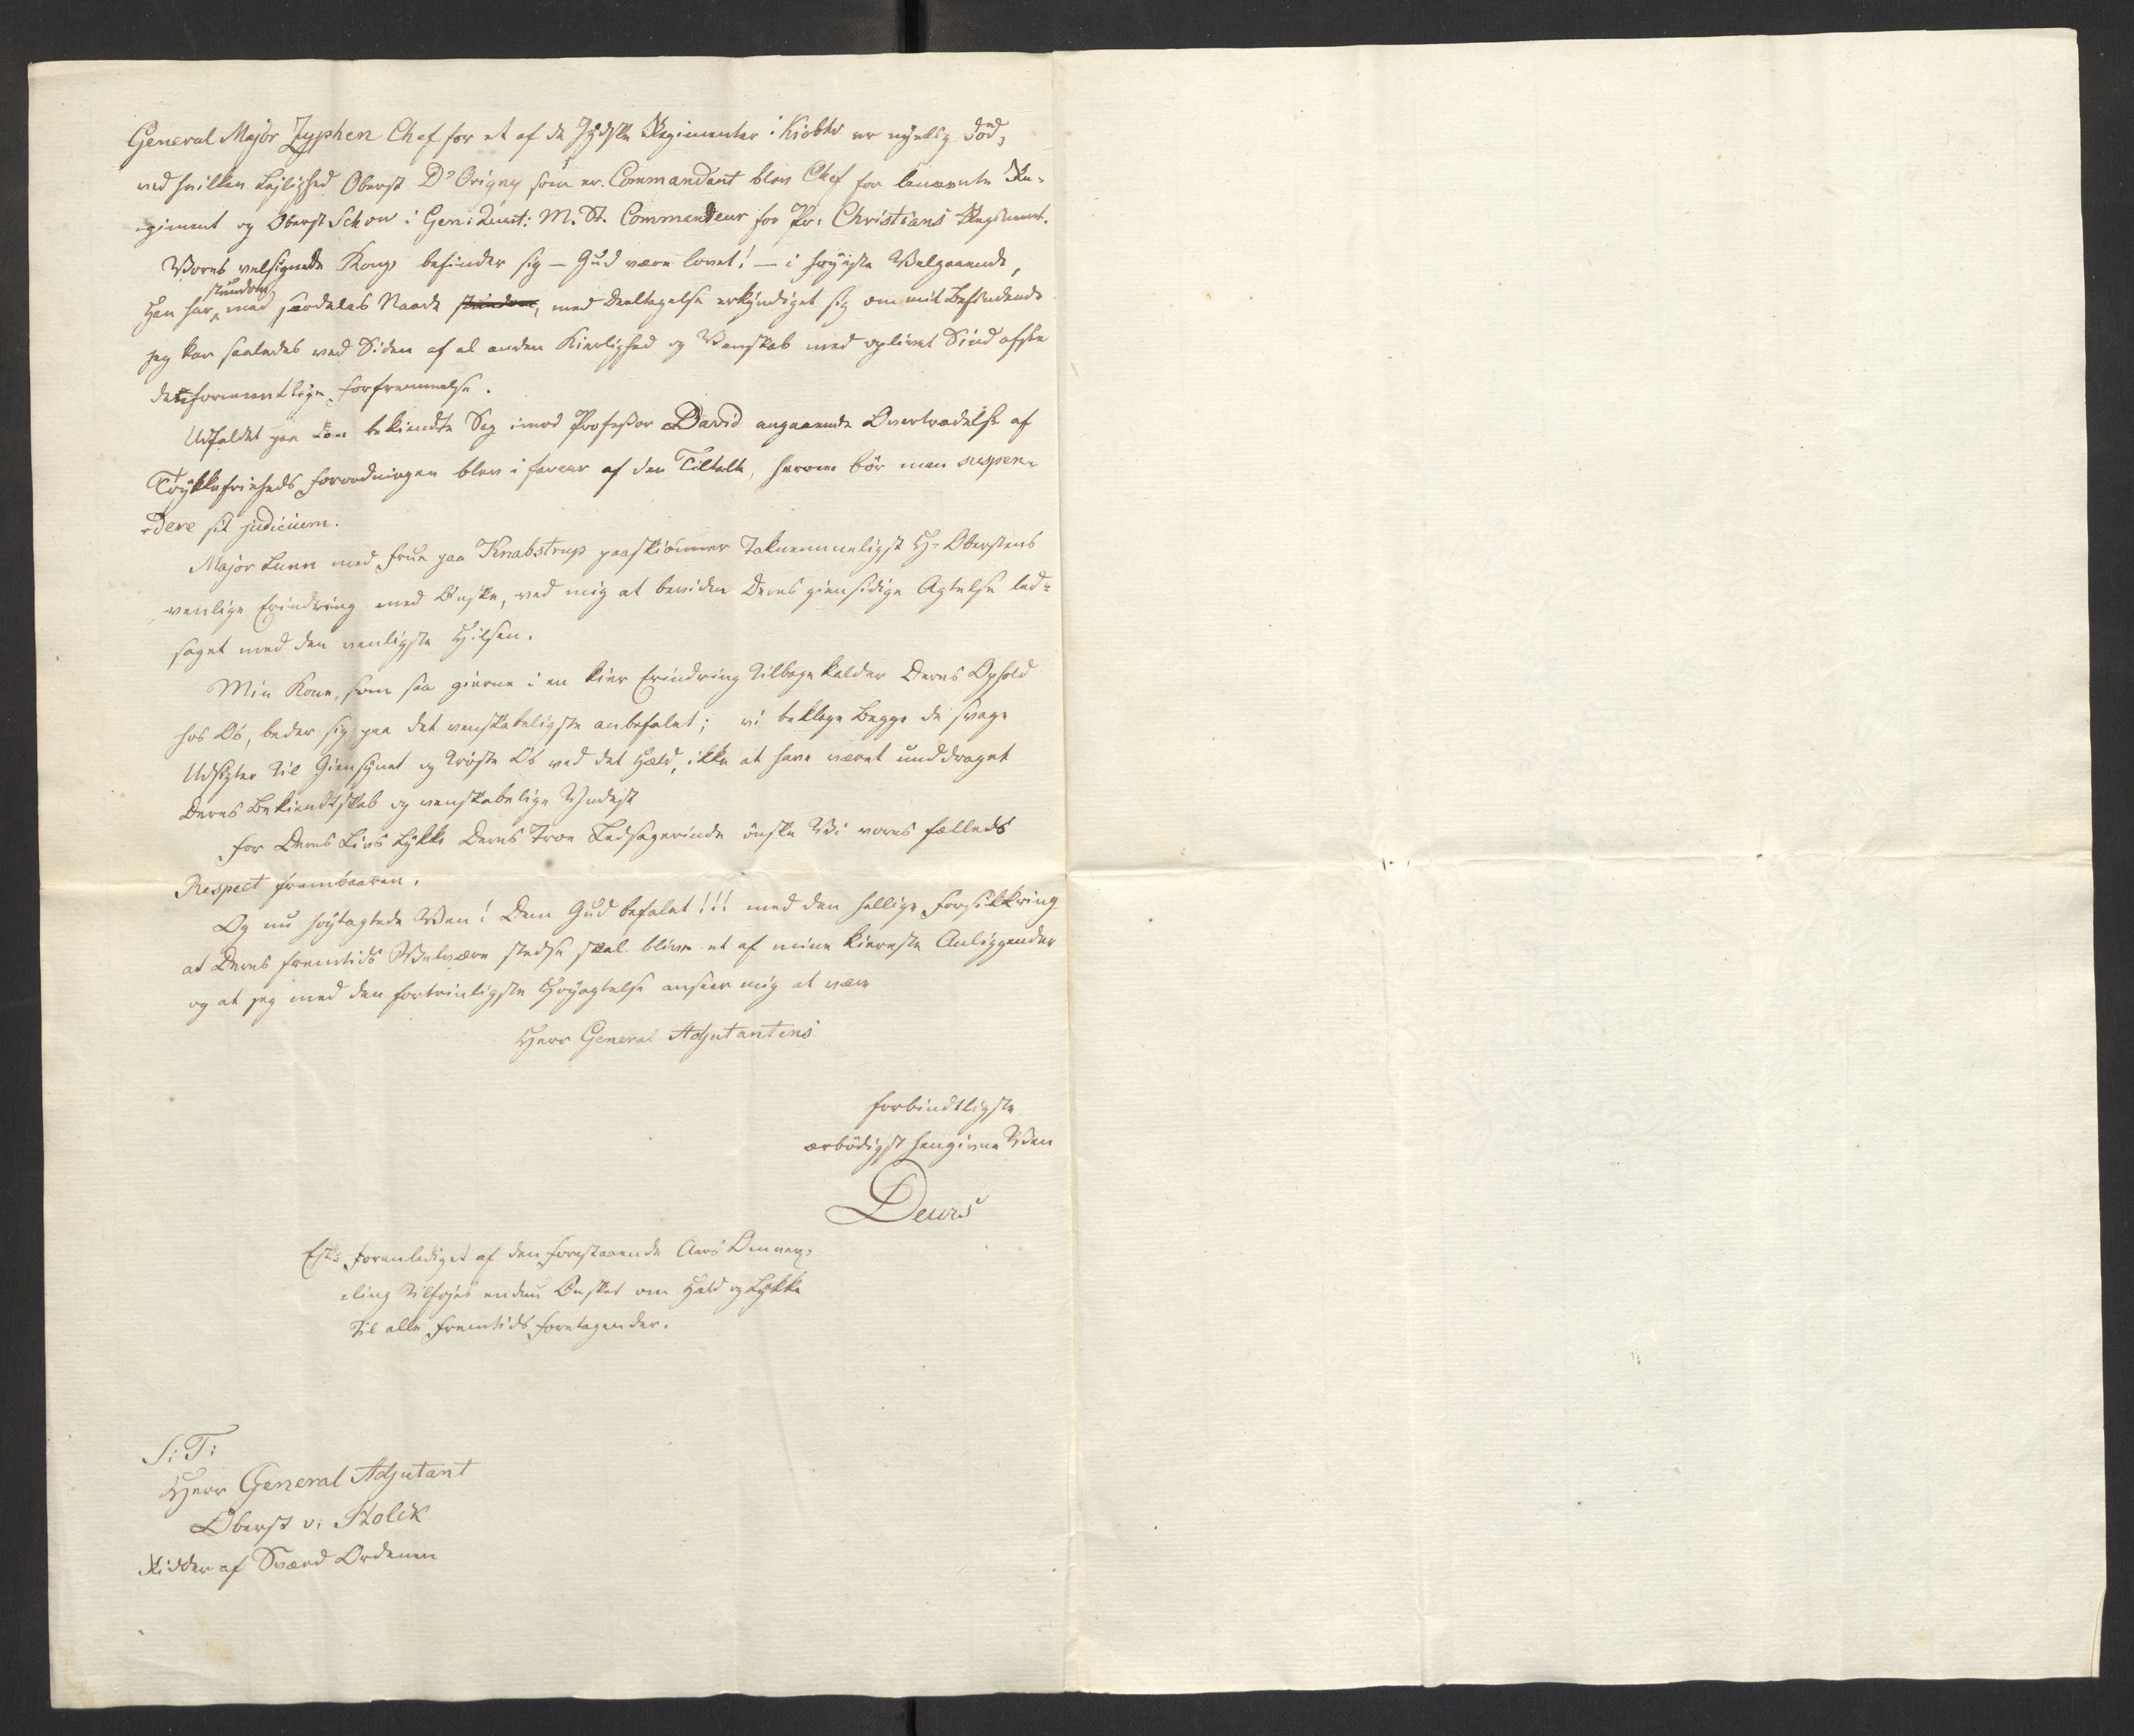 General Major Zyphen Chef for et af de Jydske Regimenter i Kiøbhv er nyelig død,
ved hvilken Lejlighed Oberst D'Origny som er Commandant blev Chef for benævnte Re-
giment og Oberst Schow i Gen: Quart: M. St. Commandeur for Pr: Christians Regiment.
Vores velsignede Konge befinder sig – Gud være lovet! – i høyeste Velgaaende,
stundom
Han har med særdeles Naade stundom, med Deeltagelse erkyndiget sig om mit Befindende
jeg kan saaledes ved Siden af al anden Kierlighed og Venskab med oplivet Sind
formeentlige Forfremmelse.
Udfaldet paa den bekiendte Sag imod Professor David angaaende Overtrædelse af
Trykkefriheds Forordningen blev i faveur af den Tiltalte, herom bör man suspen-
-dere sit judicium.
Major Lunn med Frue paa Knabstrup paaskiönner Taknemmeligst Hr Oberstens
venlige Erindring med Ønske, ved mig at bevidne Deres giensidige Agtelse led-
saget med den venligste Hilsen.
Min Kone, som saa gierne i en kier Erindring tilbage kalder Deres Ophold
hos Os, beder sig paa det venskabeligste anbefalet; vi beklage Begge de svage
Udsigter til Giensynet og tröste Os ved det Held, ikke at have været unddraget
Deres Bekiendtskab og venskabelige Yndest
For Deres Livs Lykke Deres Troe Ledsagerinde önske Vi vores fælleds
Respect frembaaren.
Og nu höytagtede Ven! Dem Gud befalet!!! med den hellige Forsikkring
at Deres fremtids Velvære stedse skal blive et af mine kiereste Anliggender
og at jeg med den fortrinligste Höyagtelse anseer mig at være
Herr General Adjutantens
forbindtligste
ærbödigst hengivne Ven
Deurs
foranlediget af den forestaaende Aars Omvex-
-ling tilföjes endnu Ønsket om Held og Lykke
til alle fremtids foretagender.
S: T:
Herr General Adjutant
Oberst v: Holck
Ridder af Sværd Ordenen